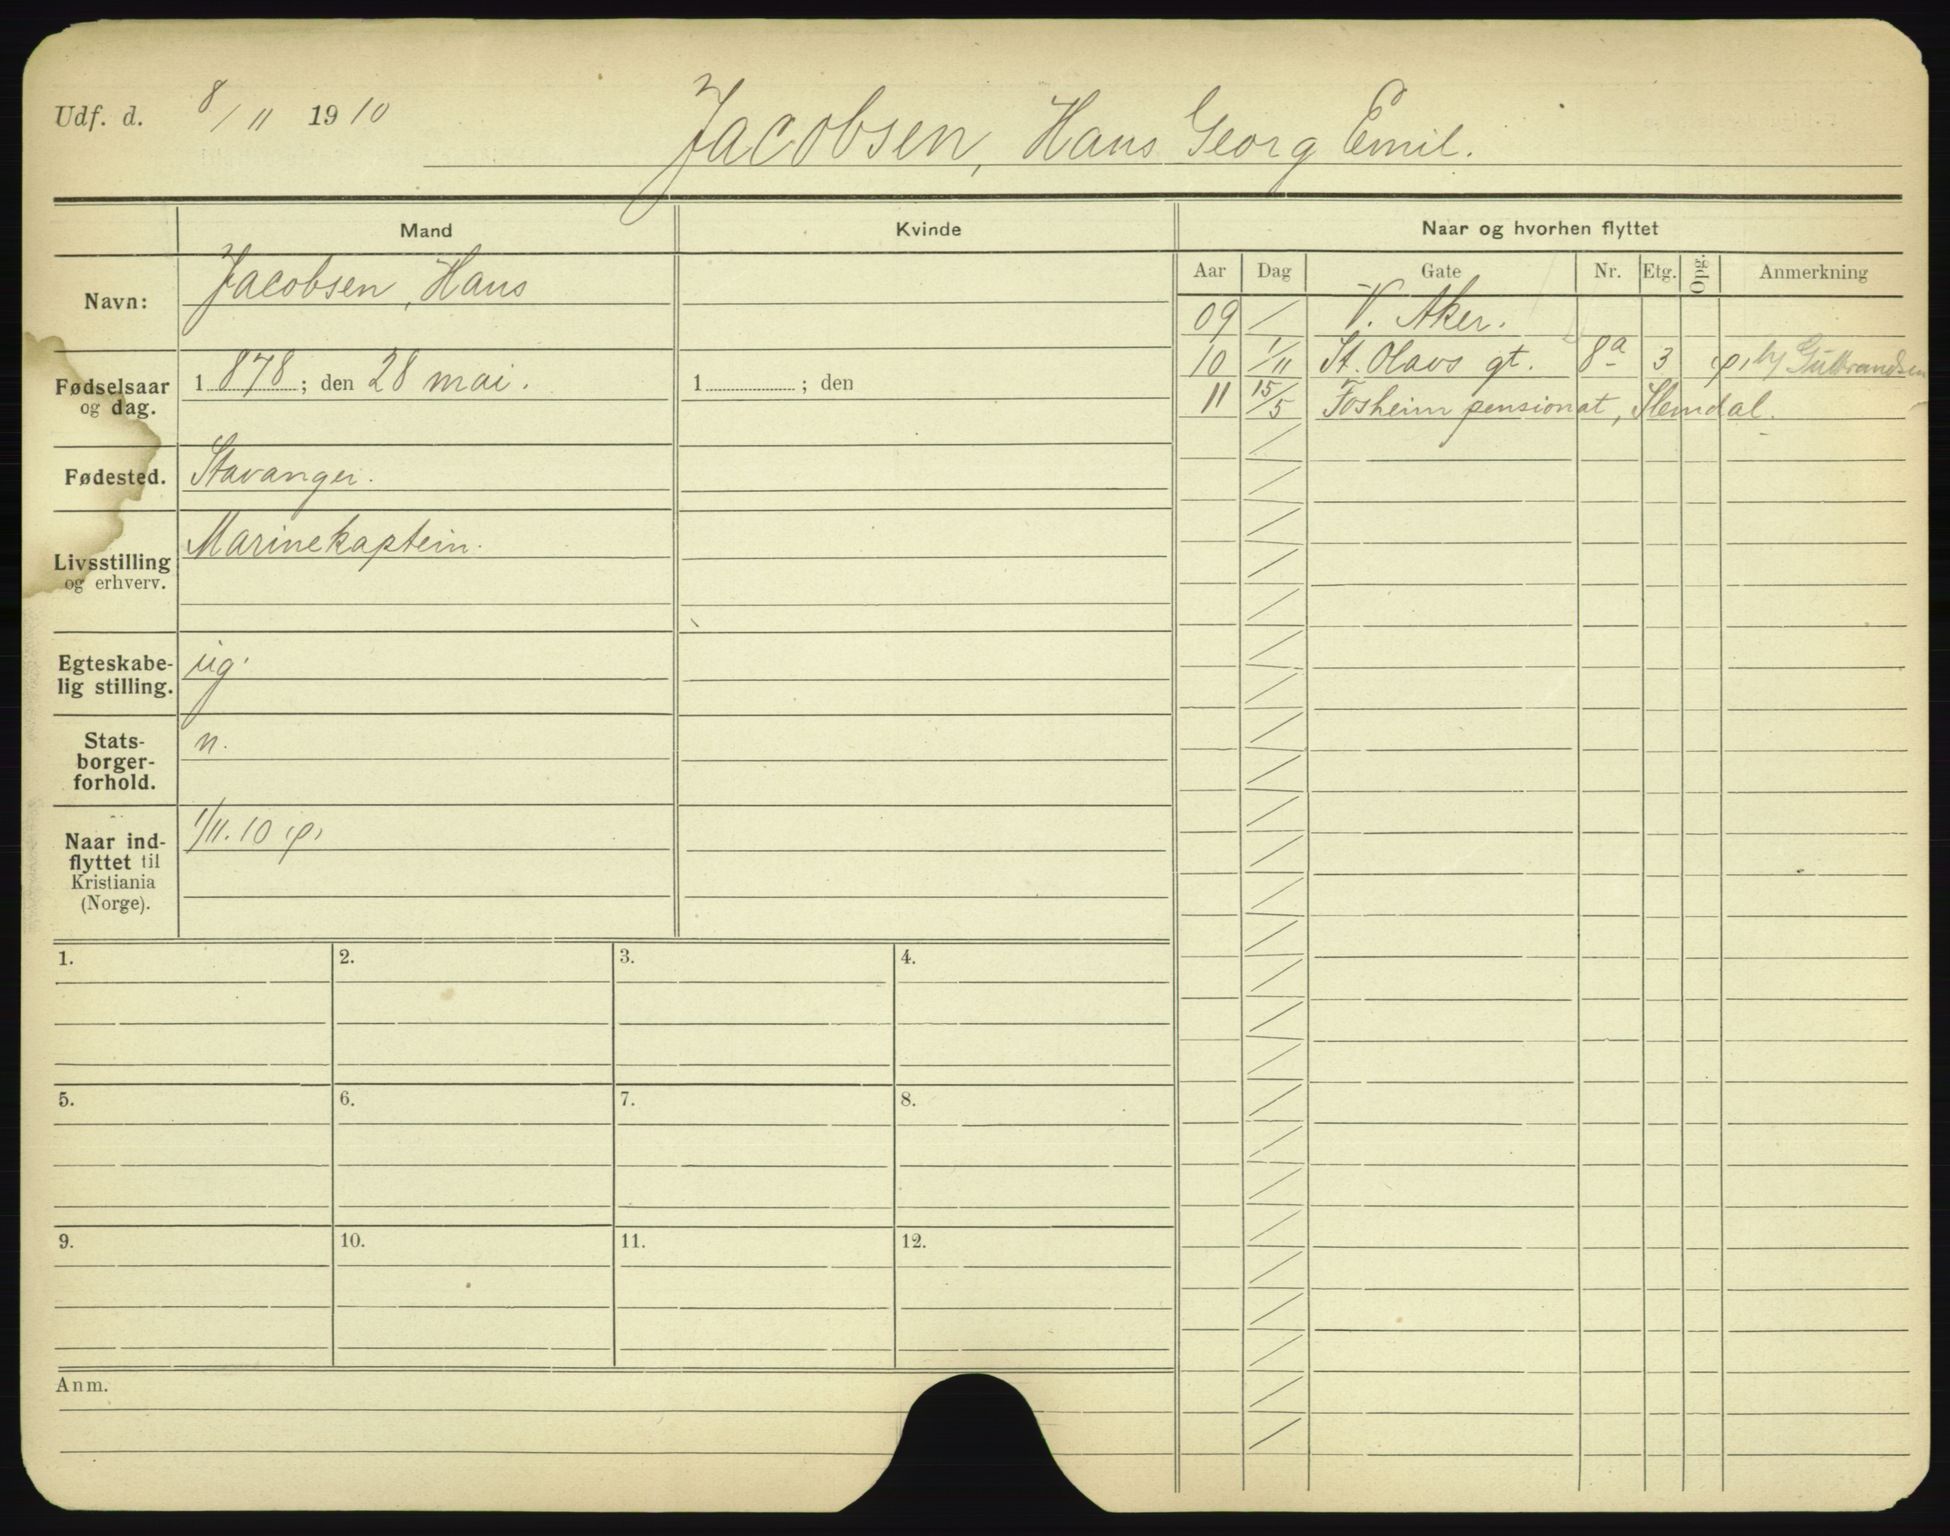 Udf. d. 8/11 1910
Jacobsen, Hans Georg Emil.
Mand
Kvinde
Naar og hvorhen flyttet
Navn:
Jacobsen, Hans
Aar Dag Gate Nr. Etg. Opg. Anmerkning
09 / V. Aker.
10 1/11 St. Olavs gt. 8a 3 p, h/ Gulbrandsen
11 15/5 Fosheim pensionat, Slemdal.
Fødselsaar og dag.
1878; den 28 mai.
1 ; den
Fødested.
Stavanger.
Livsstilling og erhverv.
Marinekaptein.
Egteskabe-
lig stilling.
ug.
Stats-
borger-
forhold.
n.
Naar ind-
flyttet til
Kristiania
(Norge).
1/11.10 p,
1. 2. 3. 4.
5. 6. 7. 8.
9. 10. 11. 12.
Anm.